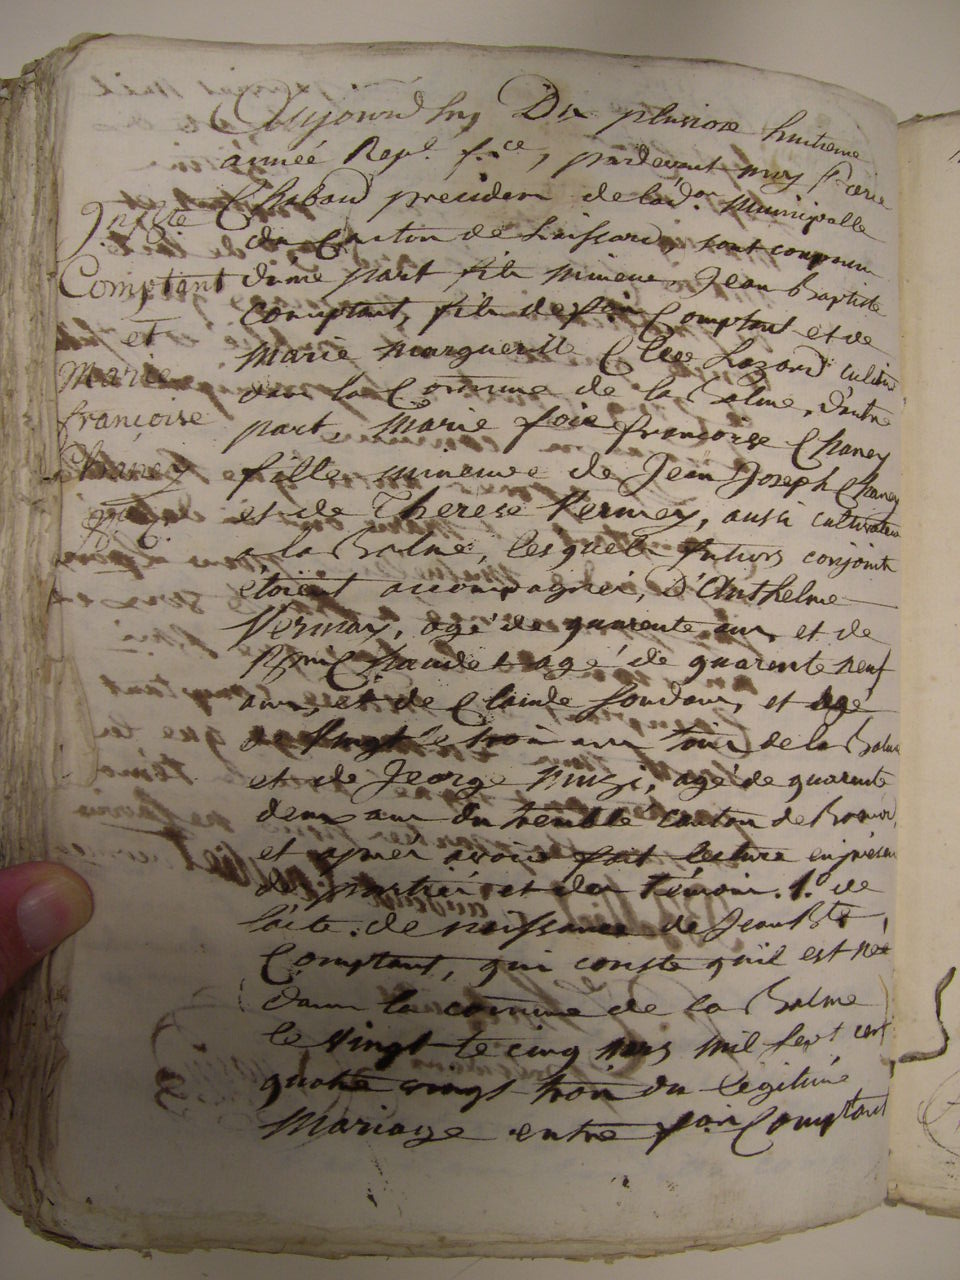 Jn Bte
Comptant
et
Marie
françoise
Chaney
Aujourdhuy Dix pluviose huitieme
année Repl. f.ce, pardevant moy
Chabaud president de lad.on Municipalle
du Canton de sont comparu
d'une part fils mineur Jean Baptiste
comptant, fils de f.ois Comptant et de
Marie Margueritte
dans la Commune de la Balme, d'autre
part, Marie françoise Chaney
fille mineure de Jean Joseph Chaney
et de Therese Vermey, aussi cultivateur
a la Balme, lesquels futurs conjoints
étoient accompagnés, D'Anthelme
age de quarente ans, et de
agé de quarente neuf
ans, et de Claude et agé
de vingt trois ans tous de la Balme
et de George agé de quarente
deux ans du canton de
et apres avoir fait lecture en présen
des parties et des témoins. 1.o de
l'acte de naissance de Jean Bte
Comptant, qui conste qu'il est né
dans la comune de la Balme
le vingt et cinq mars mil sept cent
quatre vingt trois du légitime
Mariage entre f.ois Comptant